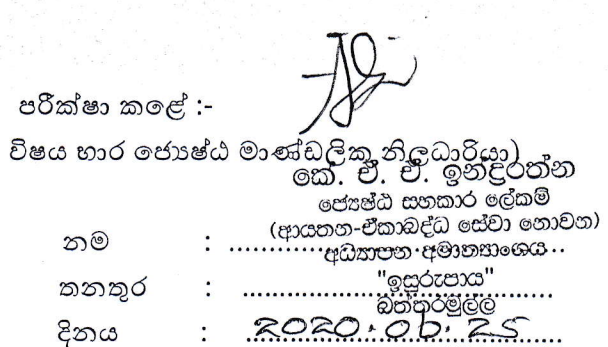 පරීක්ෂා කළේ :-
විෂය භාර ජ්‍යෙෂ්ඨ මාණ්ඩලික නිලධාරියා)
කේ. ඒ. ඒ. ඉන්ද්‍රරත්න
ජ්‍යෙෂ්ඨ සහකාර ලේකම්
(ආයතන-ඒකාබද්ධ සේවා නොවන)
නම : අධ්‍යාපන අමාත්‍යාංශය
තනතුර : "ඉසුරුපාය"
බත්තරමුල්ල
දිනය : 2020.06.25